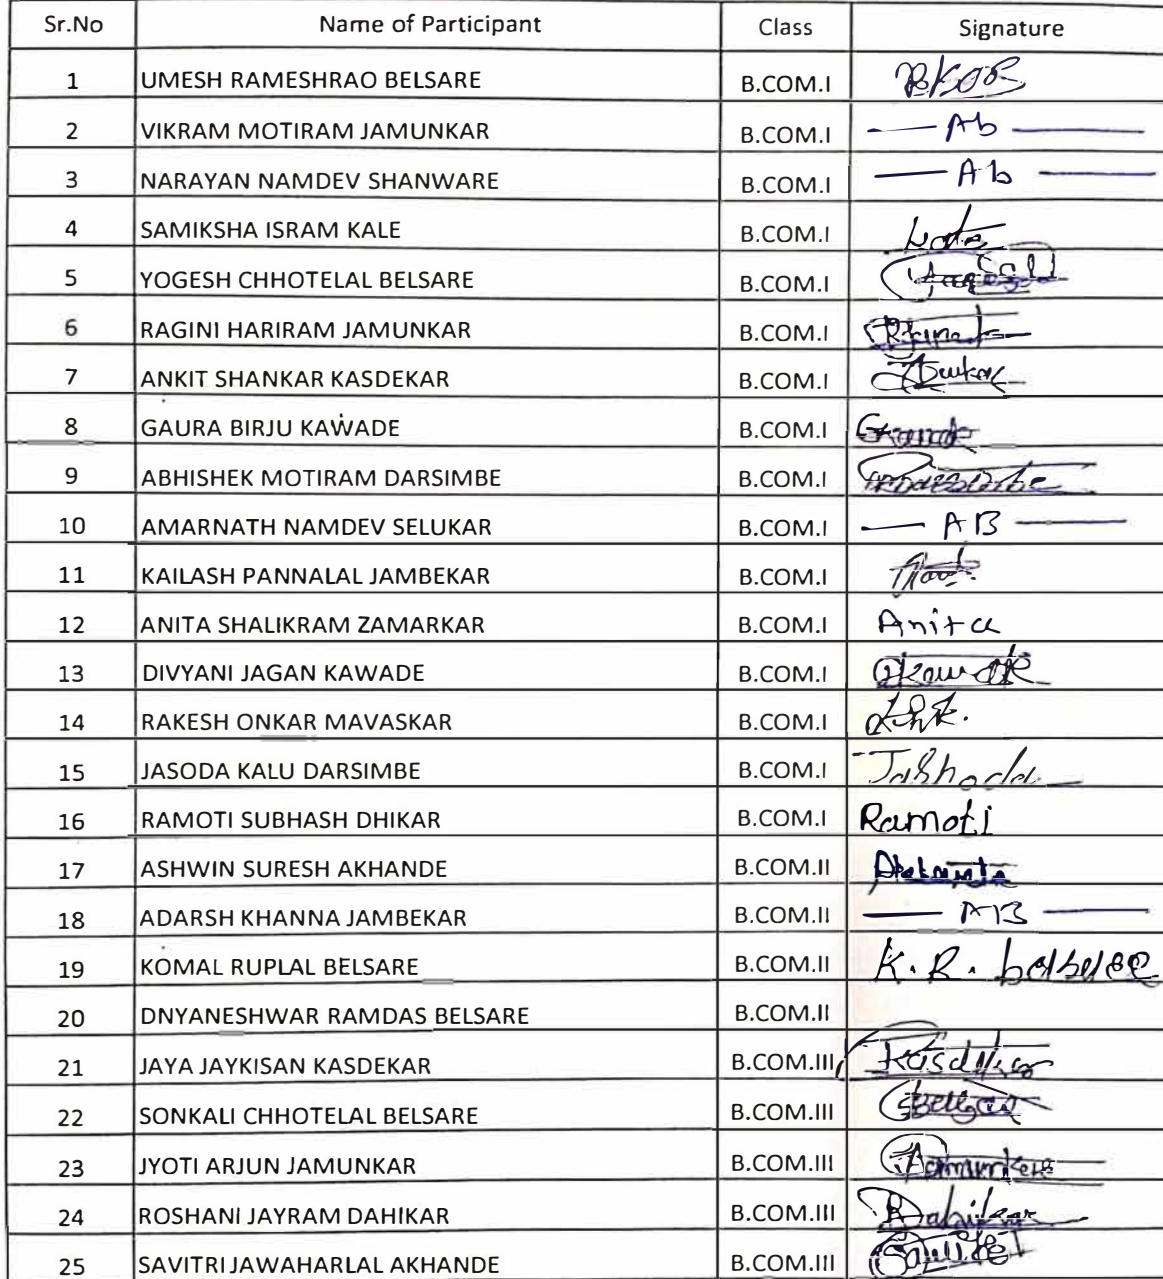 Sr.No Name of Participant Class Signature
1 UMESH RAMESHRAO BELSARE B.COM.I
2 VIKRAM MOTIRAM JAMUNKAR B.COM.I Ab
3 NARAYAN NAMDEV SHANWARE B.COM.I Ab
4 SAMIKSHA ISRAM KALE B.COM.I
5 YOGESH CHHOTELAL BELSARE B.COM.I
6 RAGINI HARIRAM JAMUNKAR B.COM.I
7 ANKIT SHANKAR KASDEKAR B.COM.I
8 GAURA BIRJU KAWADE B.COM.I
9 ABHISHEK MOTIRAM DARSIMBE B.COM.I
10 AMARNATH NAMDEV SELUKAR B.COM.I AB
11 KAILASH PANNALAL JAMBEKAR B.COM.I
12 ANITA SHALIKRAM ZAMARKAR B.COM.I Anita
13 DIVYANI JAGAN KAWADE B.COM.I
14 RAKESH ONKAR MAVASKAR B.COM.I
15 JASODA KALU DARSIMBE B.COM.I Jashoda
16 RAMOTI SUBHASH DHIKAR B.COM.I Ramoti
17 ASHWIN SURESH AKHANDE B.COM.II
18 ADARSH KHANNA JAMBEKAR B.COM.II AB
19 KOMAL RUPLAL BELSARE B.COM.II K. R.
20 DNYANESHWAR RAMDAS BELSARE B.COM.II
21 JAYA JAYKISAN KASDEKAR B.COM.III
22 SONKALI CHHOTELAL BELSARE B.COM.III
23 JYOTI ARJUN JAMUNKAR B.COM.III
24 ROSHANI JAYRAM DAHIKAR B.COM.III
25 SAVITRI JAWAHARLAL AKHANDE B.COM.III